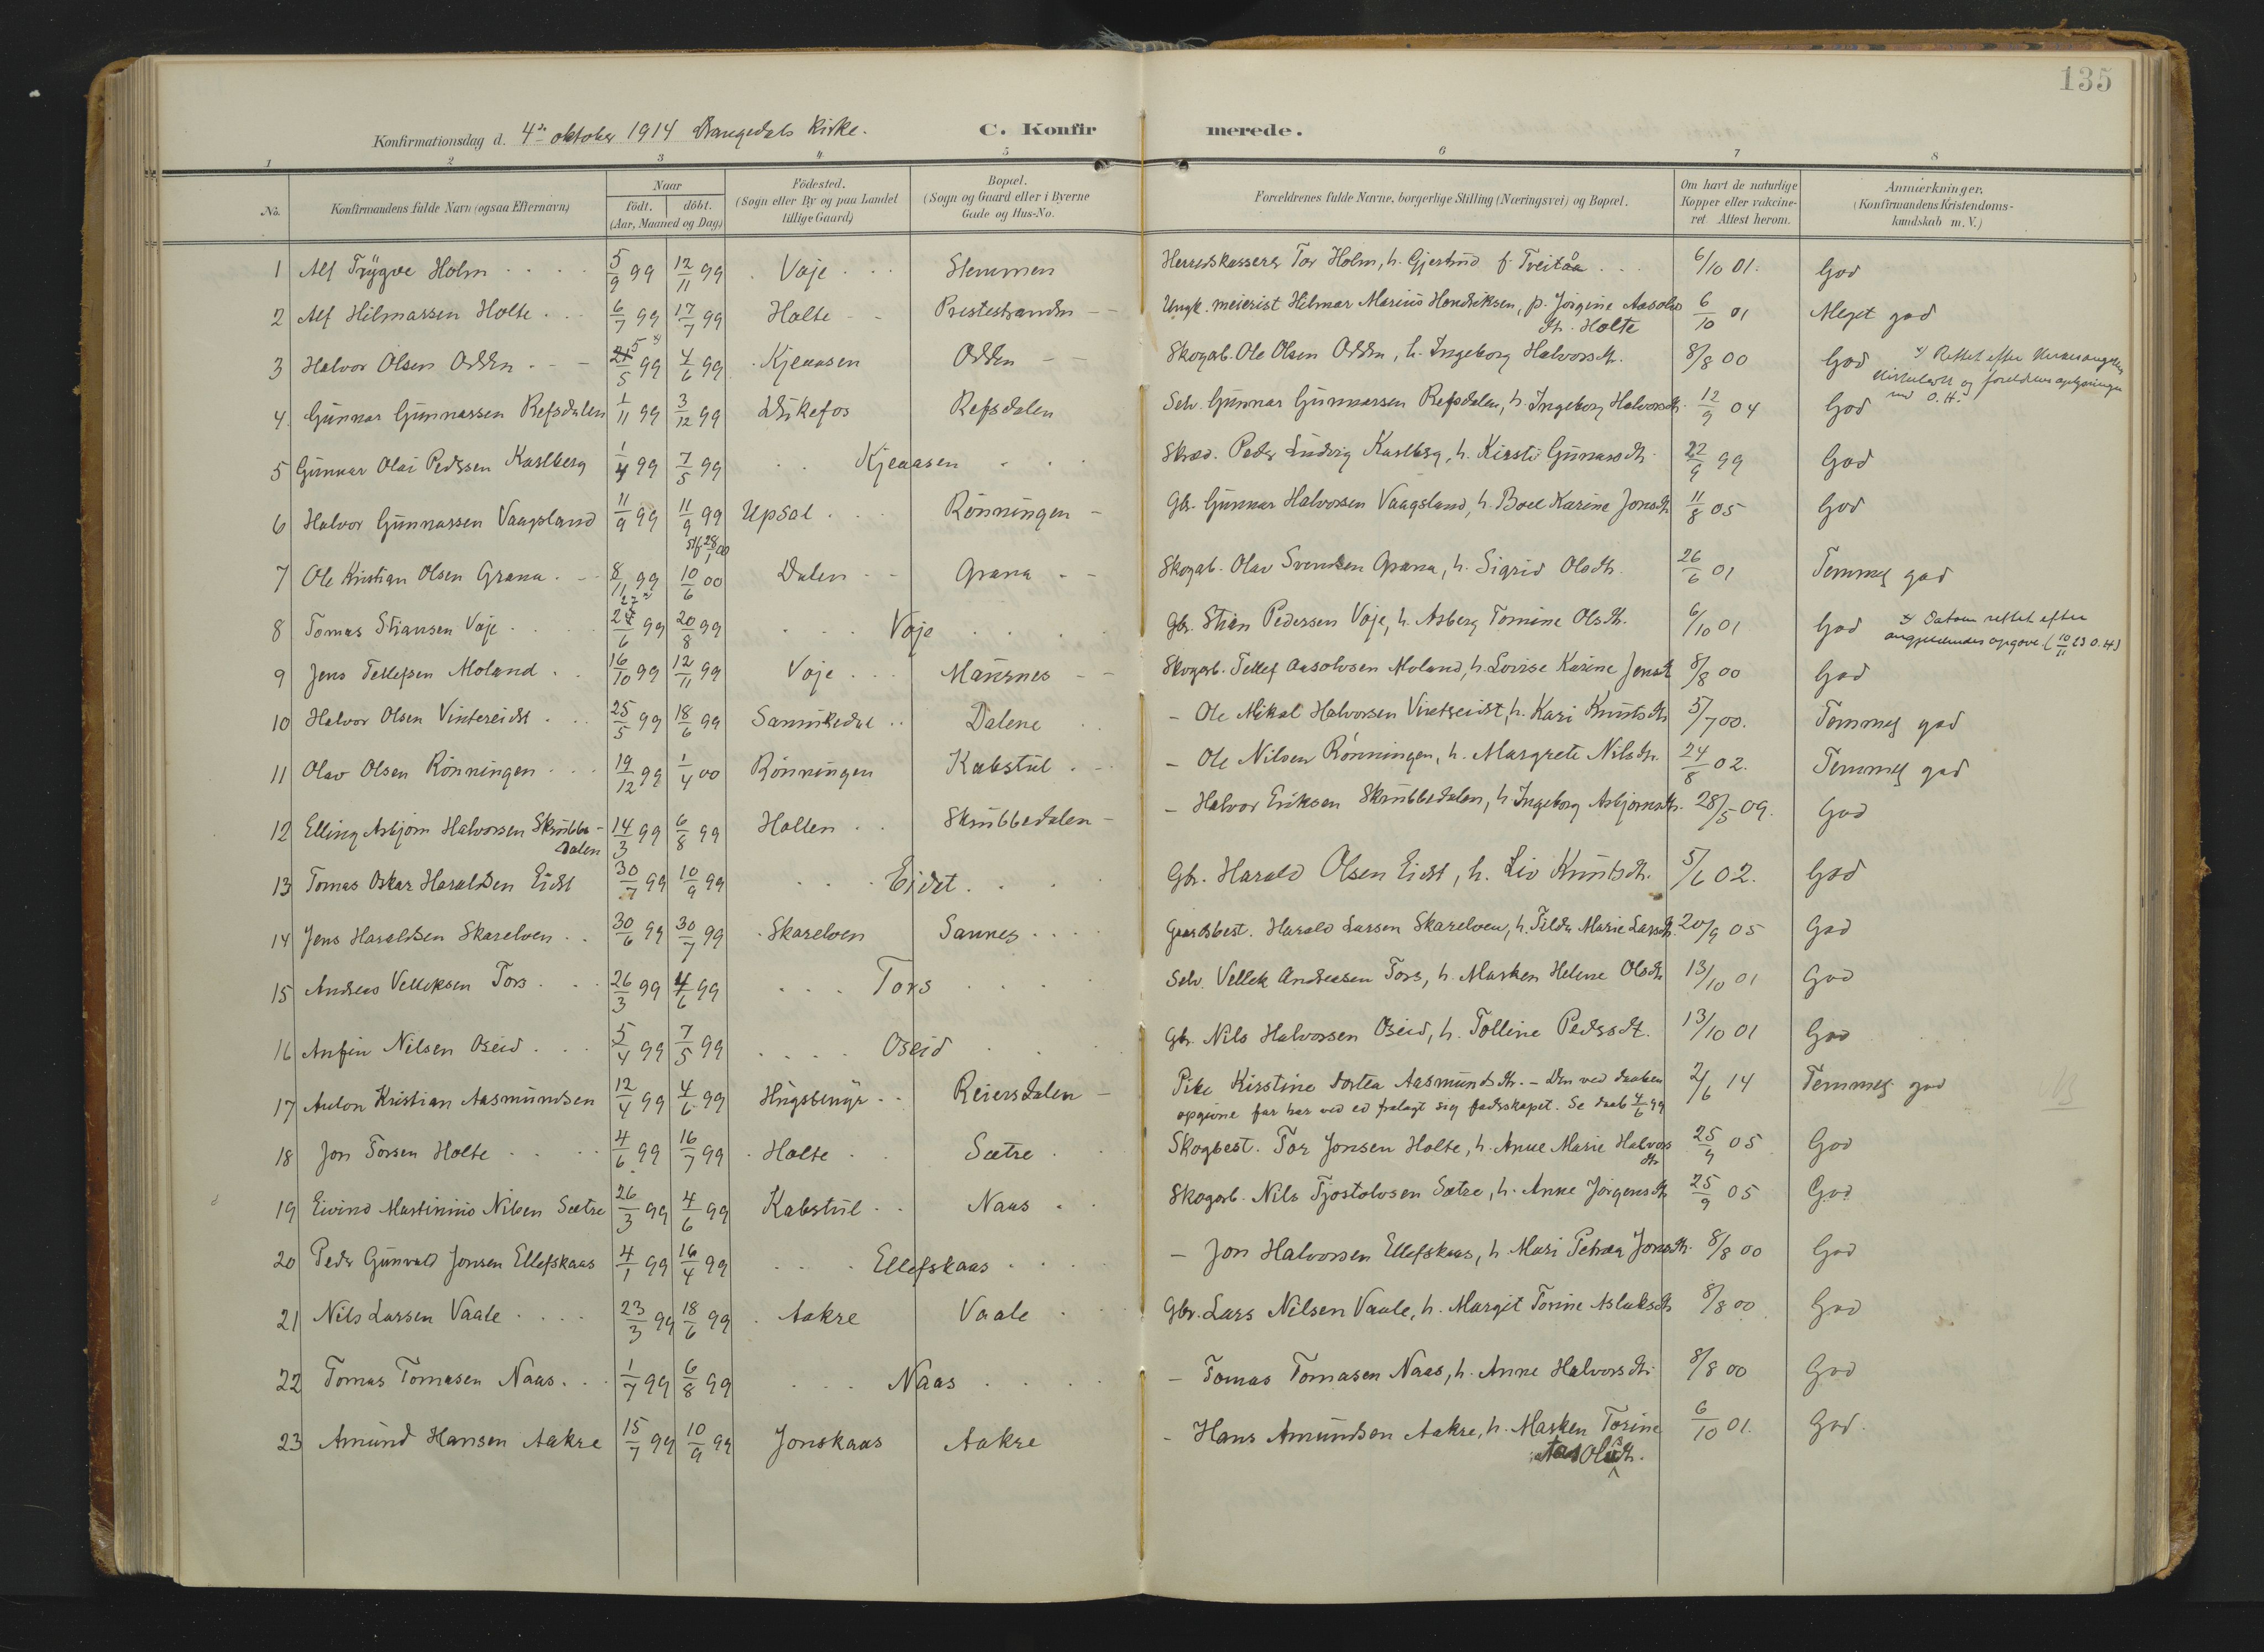 135
Konfirmationsdag d. 4de oktober 1914 Drangedals kirke. C. Konfirmerede.
1 2 3 4 5 6 7 8
No. Konfirmandens fulde Navn (ogsaa Efternavn) Naar födt. döbt. (Aar, Maaned og Dag) Födested. (Sogn eller By og paa Landet tillige Gaard) Bopæl. (Sogn og Gaard eller i Byerne Gade og Hus-No. Forældrenes fulde Navne, borgerlige Stilling (Næringsvei) og Bopæl. Om havt de naturlige Kopper eller vakcineret Attest herom. Anmærkninger. (Konfirmandens Kristendomskundskab m. V.)
1 Alf Trygve Holm 5/9 99 12/11 99 Voje Stemmen Herredskasserer Tor Holm, h. Gjertrud f. Treitåa 6/10 01. God
2 Alf Hilmarsen Holte 6/7 99 17/7 99 Holte Prestestranden Ungk. meierist Hilmar Marius Hendriksen, p. Jørgine Aasolvs dtr. Holte 6/10 01 Meget god
3 Halvor Olsen Odden 5/5 99 4/6 99 Kjeaasen Odden Skogarb. Ole Olsen Odden, h. Ingeborg Halvorsdtr. 8/8 00 God x) Rettet efter
4 Gunnar Gunnarsen Refsdalen 1/11 99 3/12 99 Dukefos Refsdalen Selv. Gunnar Gunnarsen Refsdalen, h. Ingeborg Halvorsdtr. 12/9 04 God
5 Gunnar Olai Pedersen Kaslberg 1/4 99 7/5 99 Kjeaasen Skræd. Peder Ludvig Kaslberg, h. Kirsti Gunarsdtr. 22/9 99 God
6 Halvor Gunnarsen Vaagsland 11/9 99 11/9 99 stf 28/1 00 Upsal Rönningen Gbr. Gunnar Halvorsen Vaagsland, h. Boel Karine Jonsdtr 11/8 05 God
7 Ole Kristian Olsen Grana 8/11 99 10/6 00 Dalen Grana Skogarb. Olav Svendsen Grana, h. Sigrid Olsdtr. 26/6 01 Temmelig god
8 Tomas Stiansen Voje 27/6 99 20/8 99 Voje Gbr. Stian Pedersen Voje, h. Asberg Tomine Olsdtr. 6/10 01 God x) Datoen rettet efter angjeldendes opgave. (10/11 63 O.H)
9 Jens Tellefsen Moland 16/10 99 12/11 99 Voje Mausnes Skogarb. Tellef Aasolvsen Moland, h. Lovise Karine Jensdtr 8/8 00 God
10 Halvor Olsen Vintereidst 25/5 99 18/6 99 Sannikedal Dalene - Ole Mikal Halvorsen Vintreidst, h. Kari Knutsdtr 5/7 00. Temmelig god
11 Olav Olsen Rönningen 19/12 99 1/4 00 Rönningen Kabstul - Ole Nilsen Rönningen, h. Margrete Nilsdtr. 24/8 02. Temmelig god
12 Elling Asbjørn Halvorsen Skrubbedalen 14/3 99 6/8 99 Holten Skrubbedalen - Halvor Eriksen Skrubbedalen, h. Ingeborg Asbjørnsdtr. 28/5 09. God
13 Tomas Oskar Haraldsen Eidst 30/7 99 10/9 99 Eidst Gbr. Harald Olsen Eidst, h. Liv Knutsdtr. 5/6 02. God
14 Jens Haraldsen Skarelven 30/6 99 30/7 99 Skarelven Sannes Gaardsbest. Harald Larsen Skarelven, h. Tilda Marie Larsdtr. 20/9 05 God
15 Andreas Velleksen Tors 26/3 99 4/6 99 Tors Selv. Vellek Andreasen Tors, h. Marken Helene Olsdtr 13/10 01 God
16 Anfin Nilsen Oseid 5/4 99 7/5 99 Oseid Gbr. Nils Halvorsen Oseid, h. Tolline Pedersdtr. 13/10 01 God
17 Anton Kristian Aasmundsen 12/4 99 4/6 99 Hugstmyr Reiersdalen Pike Kirstine Dortea Aasmundsdtr. - Den ved daaben opgivne far har ved ed fralagt sig fadrskapet. Se daab 4/6 99 2/6 14 Temmelig god
18 Jon Torsen Holte 4/6 99 16/7 99 Holte Sætre Skogbest. Tor Jonsen Holte, h. Anne Marie Halvorsdtr 25/9 05 God
19 Eivind Martinius Nilsen Sætre 26/3 99 4/6 99 Kabstul Naas Skogarb. Nils Tjostolvsen Sætre, h. Anne Jørgensdtr 25/9 05 God
20 Peder Gunvald Jonsen Ellefskaas 4/1 99 16/4 99 Ellefskaas - Jon Halvorsen Ellefskaas, h. Mari Petræa Jonsdtr. 8/8 00 God
21 Nils Larsen Vaale 23/3 99 18/6 99 Aakre Vaale Gbr. Lars Nilsen Vaale, h. Margit Torine Aslaksdtr 8/8 00 God
22 Tomas Tomasen Naas 1/7 99 6/8 99 Naas - Tomas Tomasen Naas, h. Anne Halvorsdtr. 8/8 00 God
23 Amund Hansen Aakre 15/7 99 10/9 99 Jonskaas Aakre - Hans Amundsen Aakre, h. Marken Torine 6/10 01. God.